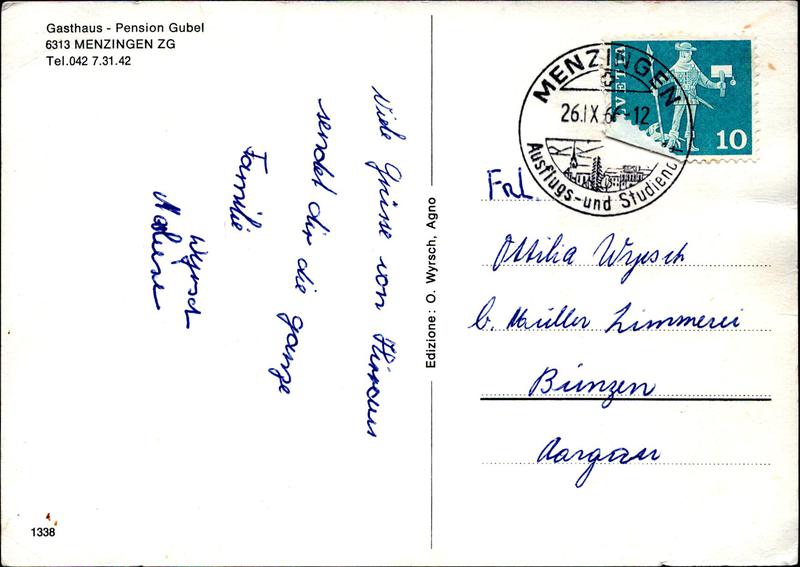 Gasthaus - Pension Gubel
6313 MENZINGEN ZG
Tel.042 7.31.42
Viele Grüsse von
sendet dir die ganze
Familie
Wyrsch
Edizione: O. Wyrsch, Agno
1338
MENZINGEN
26.IX.66-12
Ausflugs-und Studienort
VETIA
10
Frl.
Ottilia Wyrsch
b. Müller Zimmerei
Bünzen
Aargau